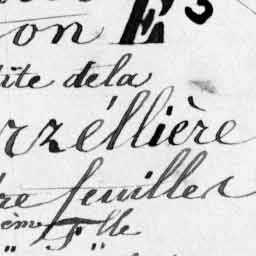 on E 3
tite dela
rzéllière
re feuilles
ème F lle